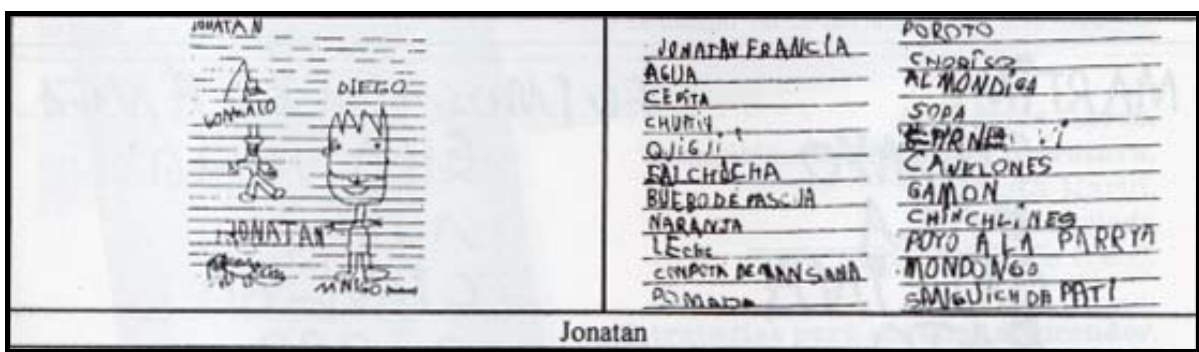 JONATAN
DIEGO
JONATAN
JONATAN FRANCIA
AGUA
SALCHICHA
BUEBO DE PASCUA
NARANJA
LEche
COMPOTA DE MANSANA
POMADA
POROTO
CHORISO
ALMONDIGA
SOPA
CANELONES
GAMON
CHINCHLINES
POYO A LA PARRYA
MONDONGO
SANGUICH DE PATI
Jonatan